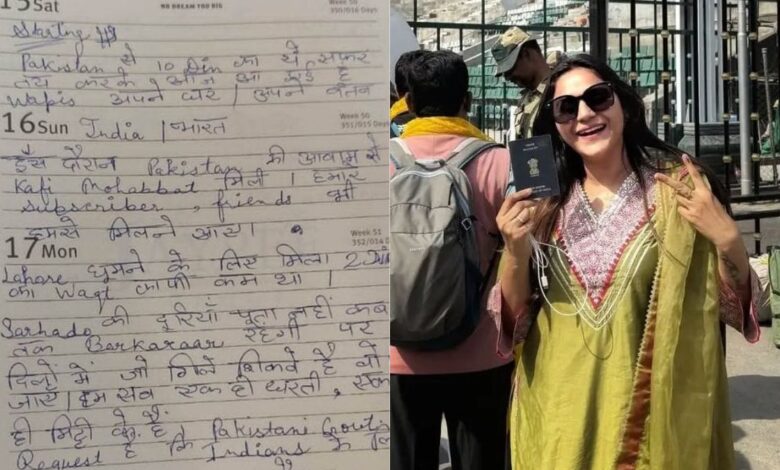 15 Sat
NO DREAM TOO BIG
Week 50
350/016 Days
Starting
Pakistan से 10 Din का ये सफर
तय करके आज आ गई है
Wapis अपने घर | अपने वतन
Week 50
351/015 Days
16 Sun India | भारत
इस दौरान Pakistan की आवाम से
Kafi Mohabbat मिली | हमारे
subscriber, friends भी
हमसे मिलने आये।
Week 51
352/014
17 Mon
Lahore घुमने के लिए मिला 2 Din
का Waqt काफी कम था |
Sarhado की दूरियाँ पता नहीं कब
तक Barkaraar रहेंगी पर
दिलों में जो गिले शिकवे है वो
जाये | हम सब एक ही धरती, एक
ही मिट्टी के है | Pakistani
Request है कि Indians के